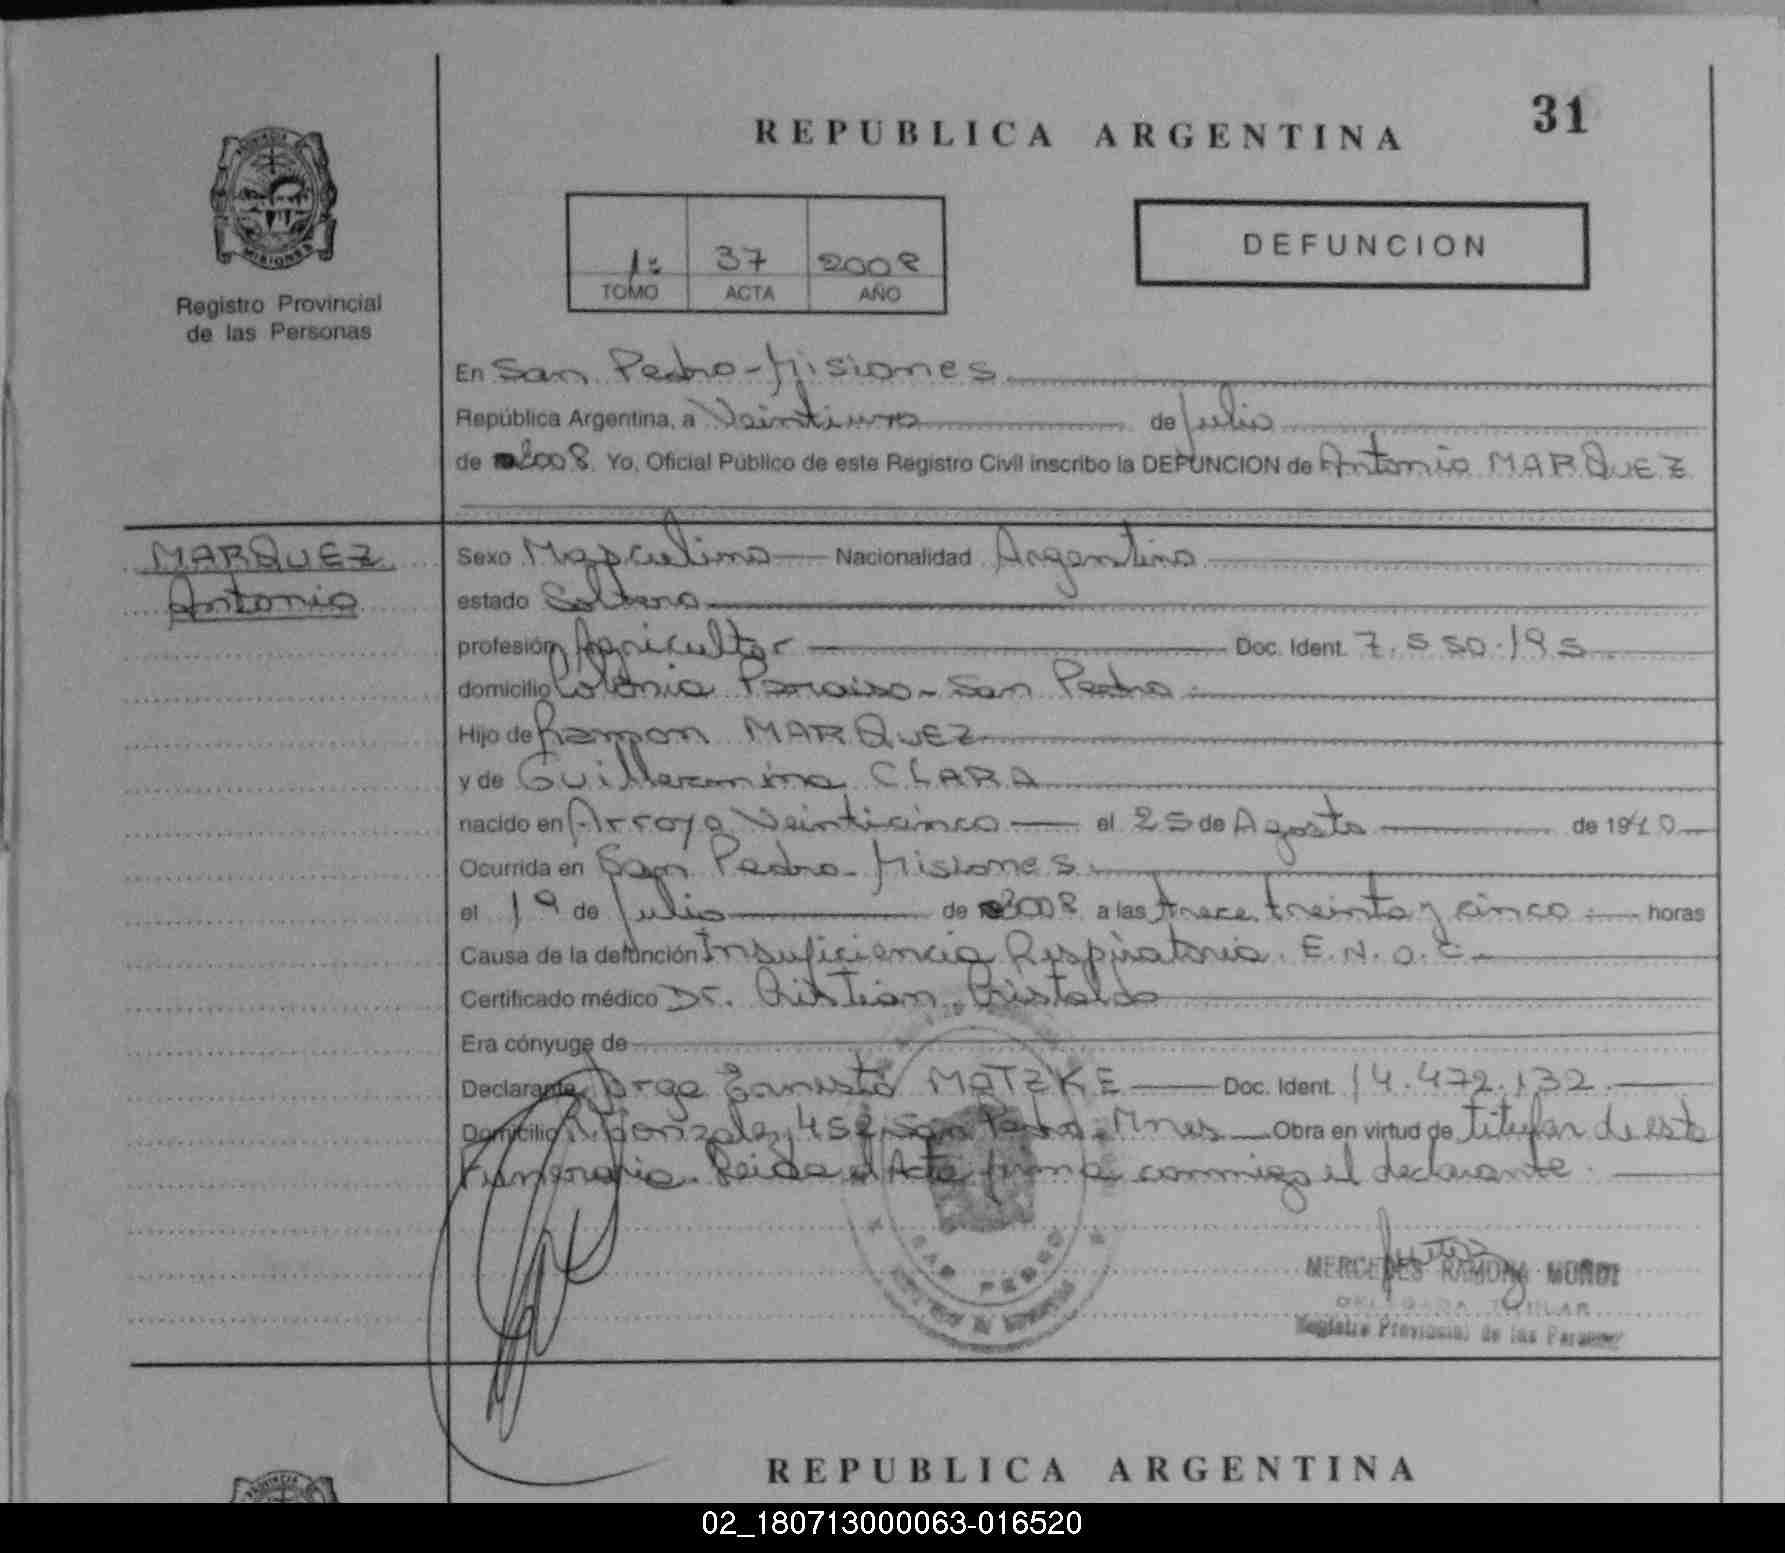 31
REPUBLICA ARGENTINA
1º 37 2008
TOMO ACTA AÑO
DEFUNCION
Registro Provincial
de las Personas
En San Pedro - Misiones
República Argentina, a Veintiuno de Julio
de 2008. Yo, Oficial Público de este Registro Civil inscribo la DEFUNCION de Antonio MARQUEZ
MARQUEZ
Antonio
Sexo Masculino Nacionalidad Argentino
estado Soltero
profesión Agricultor Doc. Ident. 7.550.195
domicilio Colonia Paraiso - San Pedro
Hijo de Ramon MARQUEZ
y de Guillermina CLARA
nacido en Arroyo Veinticinco el 25 de Agosto de 1910
Ocurrida en San Pedro - Misiones
el 19 de Julio de 2008 a las trece treinta y cinco horas
Causa de la defunción Insuficiencia Respiratoria. E.N.O.C.
Certificado médico Dr. Cristian Cristaldo
Era cónyuge de
Declarante Jorge Ernesto MATZKE Doc. Ident. 14.472.132
Domicilio 452 San Pedro - Mnes Obra en virtud de titular de esta
Funeraria. Leida el Acta firma conmigo el declarante.
SAN PEDRO
MERCEDES RAMONA
DELEGADA TITULAR
Registro Provincial de las Personas
REPUBLICA ARGENTINA
02_180713000063-016520